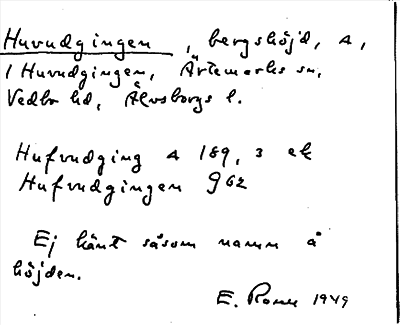 Huvudgingen, bergshöjd, A,
i Huvudgingen, Ärtemarks sn,
Vedbo hd, Älvsborgs l.
Hufvudging A 189, 3 ek
Hufvudgingen G 62
Ej känt såsom namn å
höjden.
E. Rome 1949